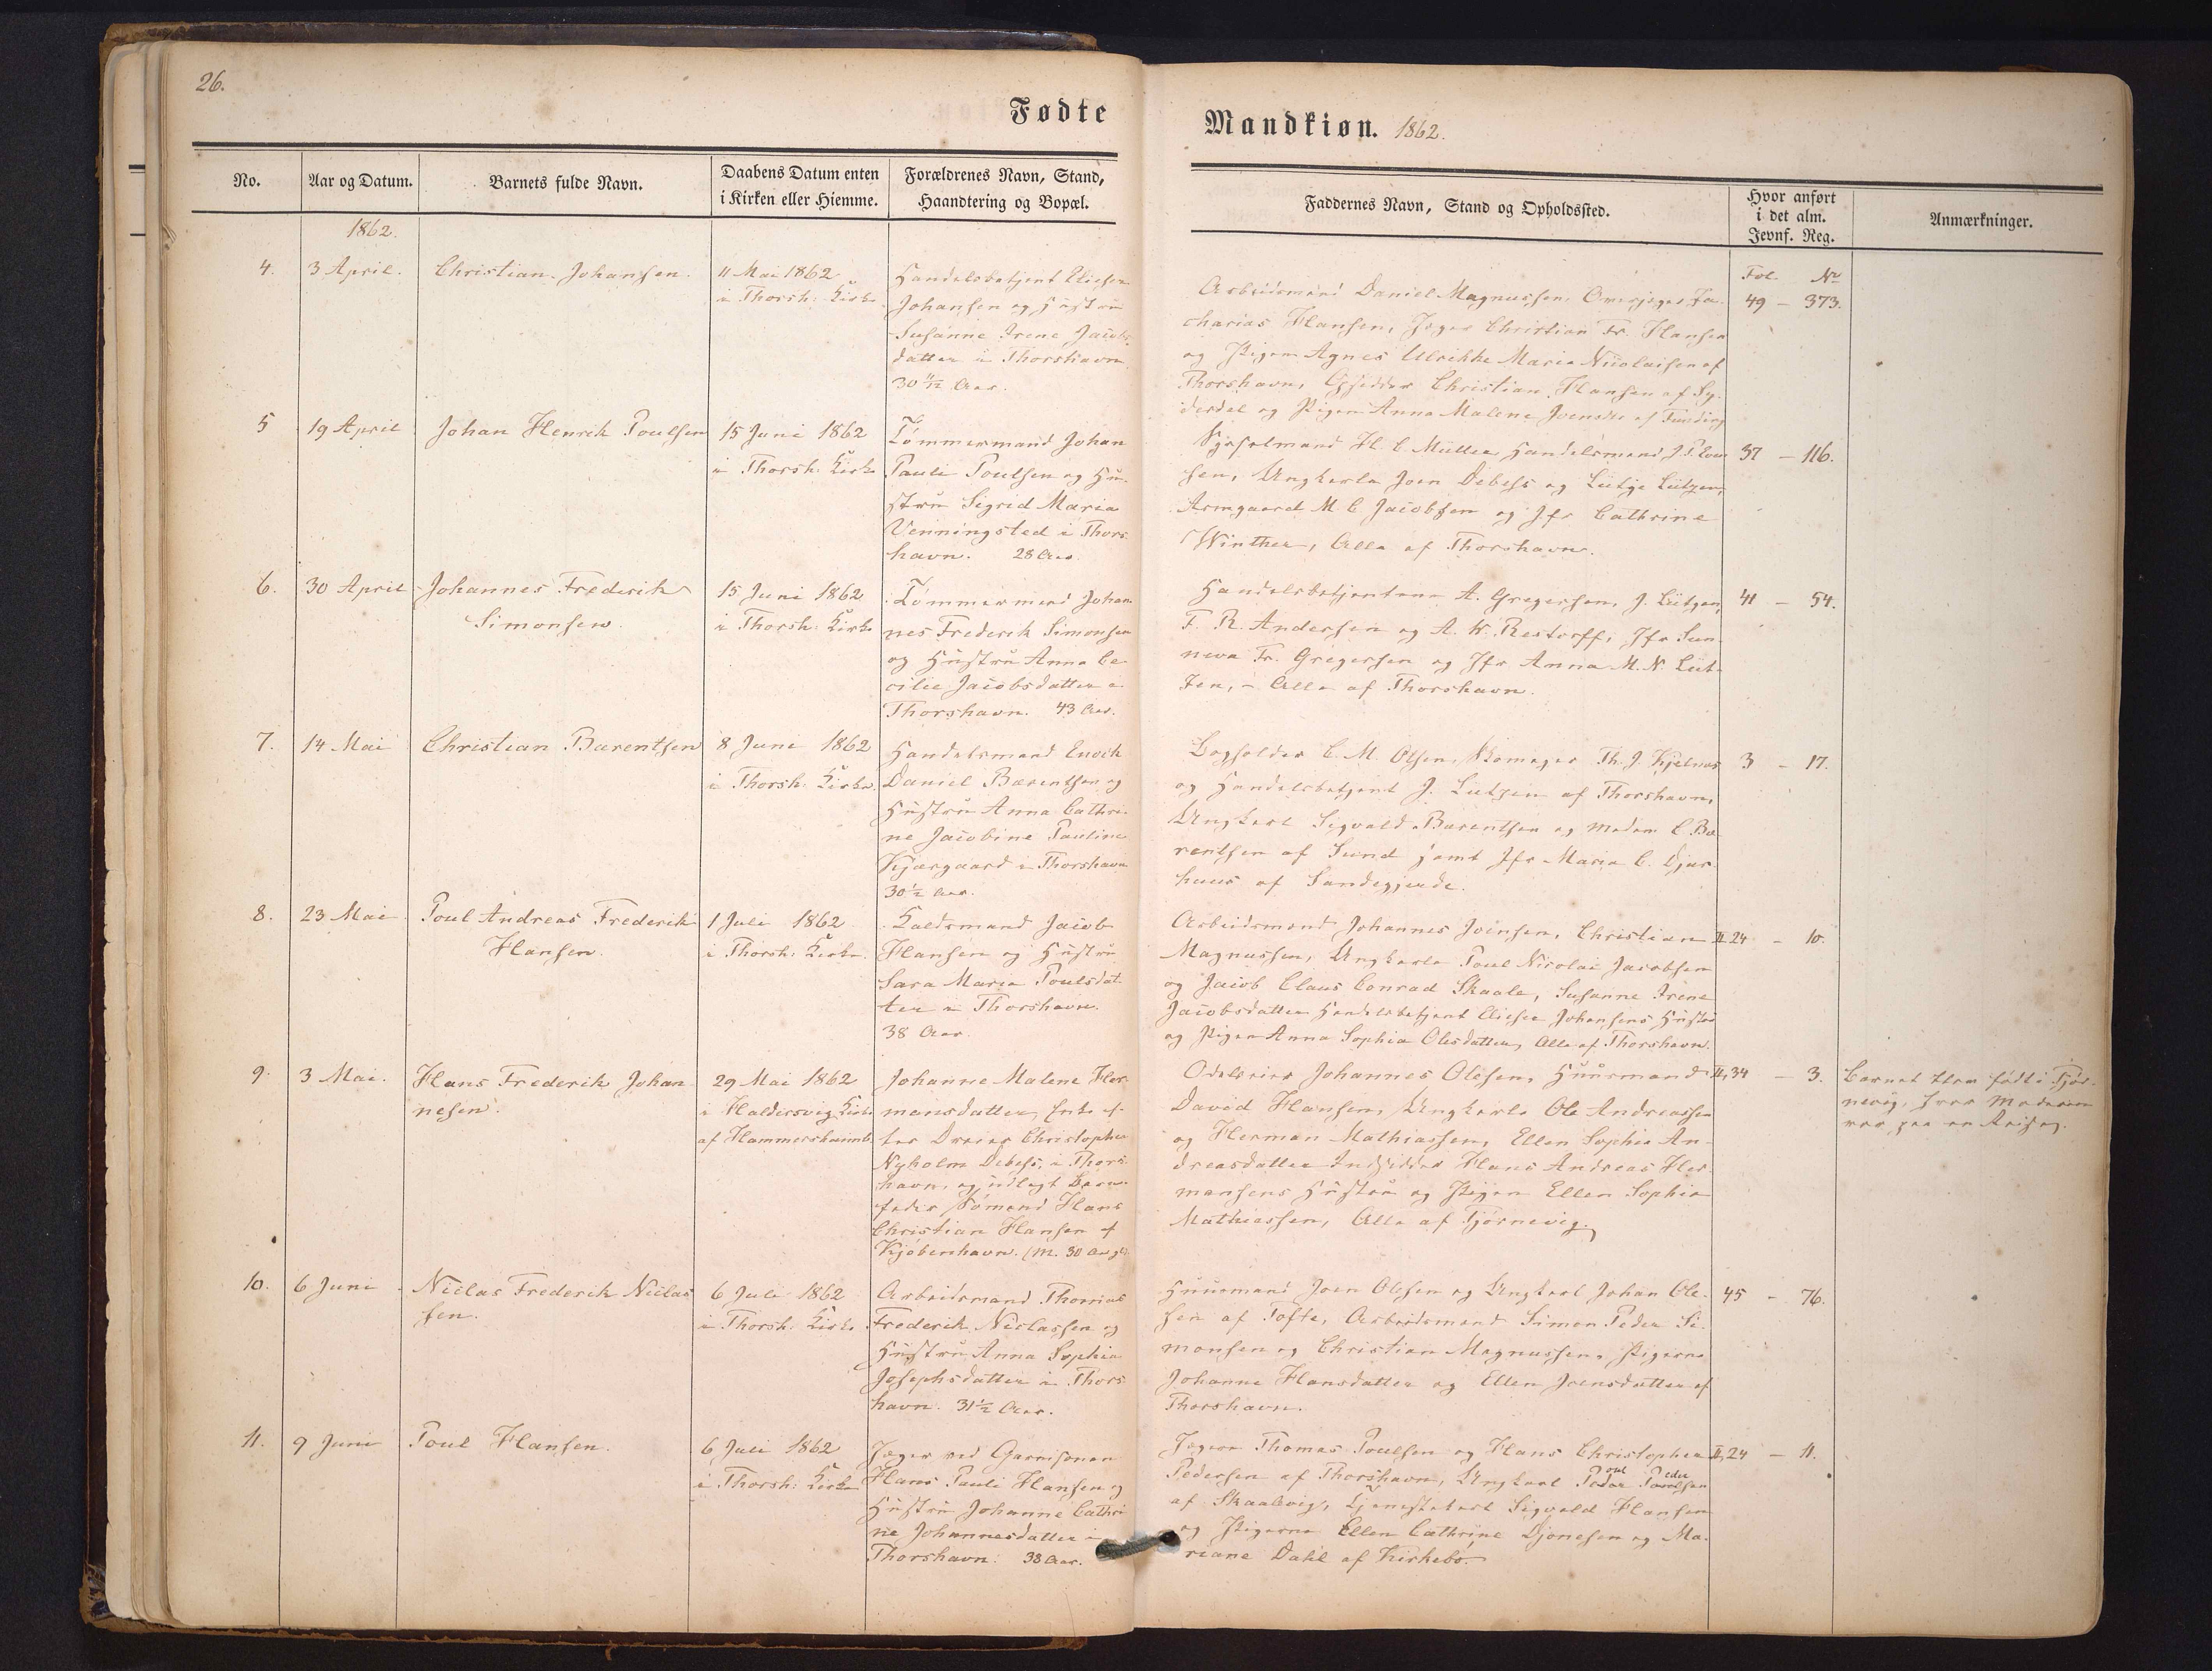 26.
Fødte
Mandkiøn. 1862.
No.
Aar og Datum.
Barnets fulde Navn.
Daabens Datum enten
i Kirken eller Hiemme.
Forældrenes Navn, Stand,
Haandtering og Bopæl.
Faddernes Navn, Stand og Opholdssted.
Hvor anført
i det alm.
Jevnf. Reg.
Anmærkninger.
1862.
Fol. No
4.
3 April.
Christian Johansen.
11 Mai 1862
i Thorsh: Kirke
Handelsbetjent Eliesen
Johansen og Hustru
Susanne Irene Jacobs-
datter i Thorshavn
30 11/12 Aar.
Arbeidsmænd Daniel Magnussen,
charias Hansen, Jæger Christian Fr. Hansen
og Pigen Agnes Ulrikke Maria Nicolaisen af
Thorshavn, Christian Hansen af Sy-
derdal og Pigen Anna Malene af Funding
49 - 373.
5
19 April
Johan Henrik Poulsen
15 Juni 1862
i Thorsh: Kirke
Tømmermand Johan
Pauli Poulsen og Hu-
stru Sigrid Maria
Venningsted i Thors-
havn. 28 Aar.
Sysselmand H. C. Müller, Handelsmand
sen, Ungkarle Joen Debess og Lützen,
Armgaard M C Jacobsen og Jfr Cathrine
Winther, Alle af Thorshavn.
37 - 116.
6.
30 April
Johannes Frederik
Simonsen
15 Juni 1862
i Thorsh: Kirke
Tømmermand Johan-
nes Frederik Simonsen
og Hustru Anna Ce-
cilie Jacobsdatter i
Thorshavn. 43 Aar.
Handelsbetjentene A. Gregersen, J. Lützen,
F. R. Andersen og A. W. Restorff, Jfr Sun-
neva Fr. Gregersen og Jfr Anna M. N. Lüt-
zen, - Alle af Thorshavn.
41 - 54.
7.
14 Mai
Christian Barentsen
8 Juni 1862
i Thorsh: Kirke.
Handelsmand Enoch
Daniel Barentsen og
Hustru Anna Cathri-
ne Jacobine Pauline
Kjærgaard i Thorshavn
30 1/2 Aar.
Bogholder C. M. Olsen, Skomager Th. J. Kjelnæs
og Handelsbetjent J. Lützen af Thorshavn,
Ungkarl Sigvald Barentsen og Madam C. Ba-
rentsen af Sund samt Jfr Maria C. Djur-
huus af Sandegjerde.
3 - 17.
8.
23 Mai
Poul Andreas Frederik
Hansen.
1 Juli 1862
i Thorsh: Kirke.
Jacob
Hansen og Hustru
Sara Maria Poulsdat-
ter i Thorshavn.
38 Aar
Arbeidsmænd Johannes Joensen, Christian
Magnussen, Ungkarle Poul Nicolai Jacobsen
og Jacob Claus Conrad Skaale, Susanne Irene
Jacobsdatter Handelsbetjent Eliesen Johansens Hustru
og Pigen Anna Sophia Olesdatter, Alle af Thorshavn.
II 24 - 10.
9.
3 Mai.
Hans Frederik Johan-
nesen.
29 Mai 1862
i Haldersvig Kirke
af Hammershaimb.
Johanne Malene Her-
mansdatter, Enke ef-
ter Dreier Christopher
Nyholm Debess, i Thors-
havn, og udlagt Barne-
fader Sømand Hans
Christian Hansen af
Kjøbenhavn. (M. 30 Aar gl.)
Odelseier Johannes Olesen, Huusmand
David Hansen, Ungkarle Ole Andreassen
og Herman Mathiassen, Ellen Sophia An-
dreasdatter Indsidder Hans Andreas Her-
mansens Hustru og Pigen Ellen Sophia
Mathiassen, Alle af Tjørnevig.
II, 34 - 3.
Barnet blev født i Tjør-
nevig, hvor Moderen
var paa en Reise.
10.
6 Juni
Niclas Frederik Niclas-
sen.
6 Juli 1862
i Thorsh: Kirke
Arbeidsmand Thomas
Frederik Niclassen og
Hustru Anna Sophia
Josephsdatter i Thors-
havn. 31 1/2 Aar.
Huusmand Joen Olesen og Ungkarl Johan Ole-
sen af Tofte, Arbeidsmænd Simon Peder Si-
monsen og Christian Magnussen, Pigerne
Johanne Hansdatter og Ellen Joensdatter af
Thorshavn.
45 - 76.
11.
9 Juni
Poul Hansen.
6 Juli 1862
i Thorsh: Kirke
Jæger ved Garnisonen
Hans Pauli Hansen og
Hustru Johanne Cathri-
ne Johannesdatter i
Thorshavn. 38 Aar.
Jægere Thomas Poulsen og Hans Christopher
Pedersen af Thorshavn, Ungkarl
af Skaalevig, Tjenestekarl Sigvald Hansen
og Pigerne Ellen Cathrine Djonesen og Ma-
riane Dahl af Kirkebø.
II, 24 - 11.